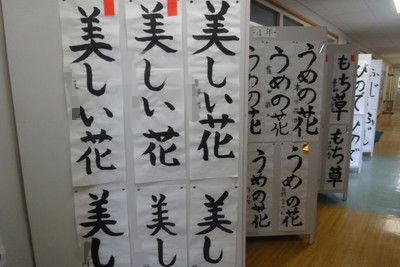 美しい花
美しい花
美しい花
美し
美し
美し
4年
うめの花
うめの花
うめの花
うめの花
うめの花
もち草
もち草
ふじ